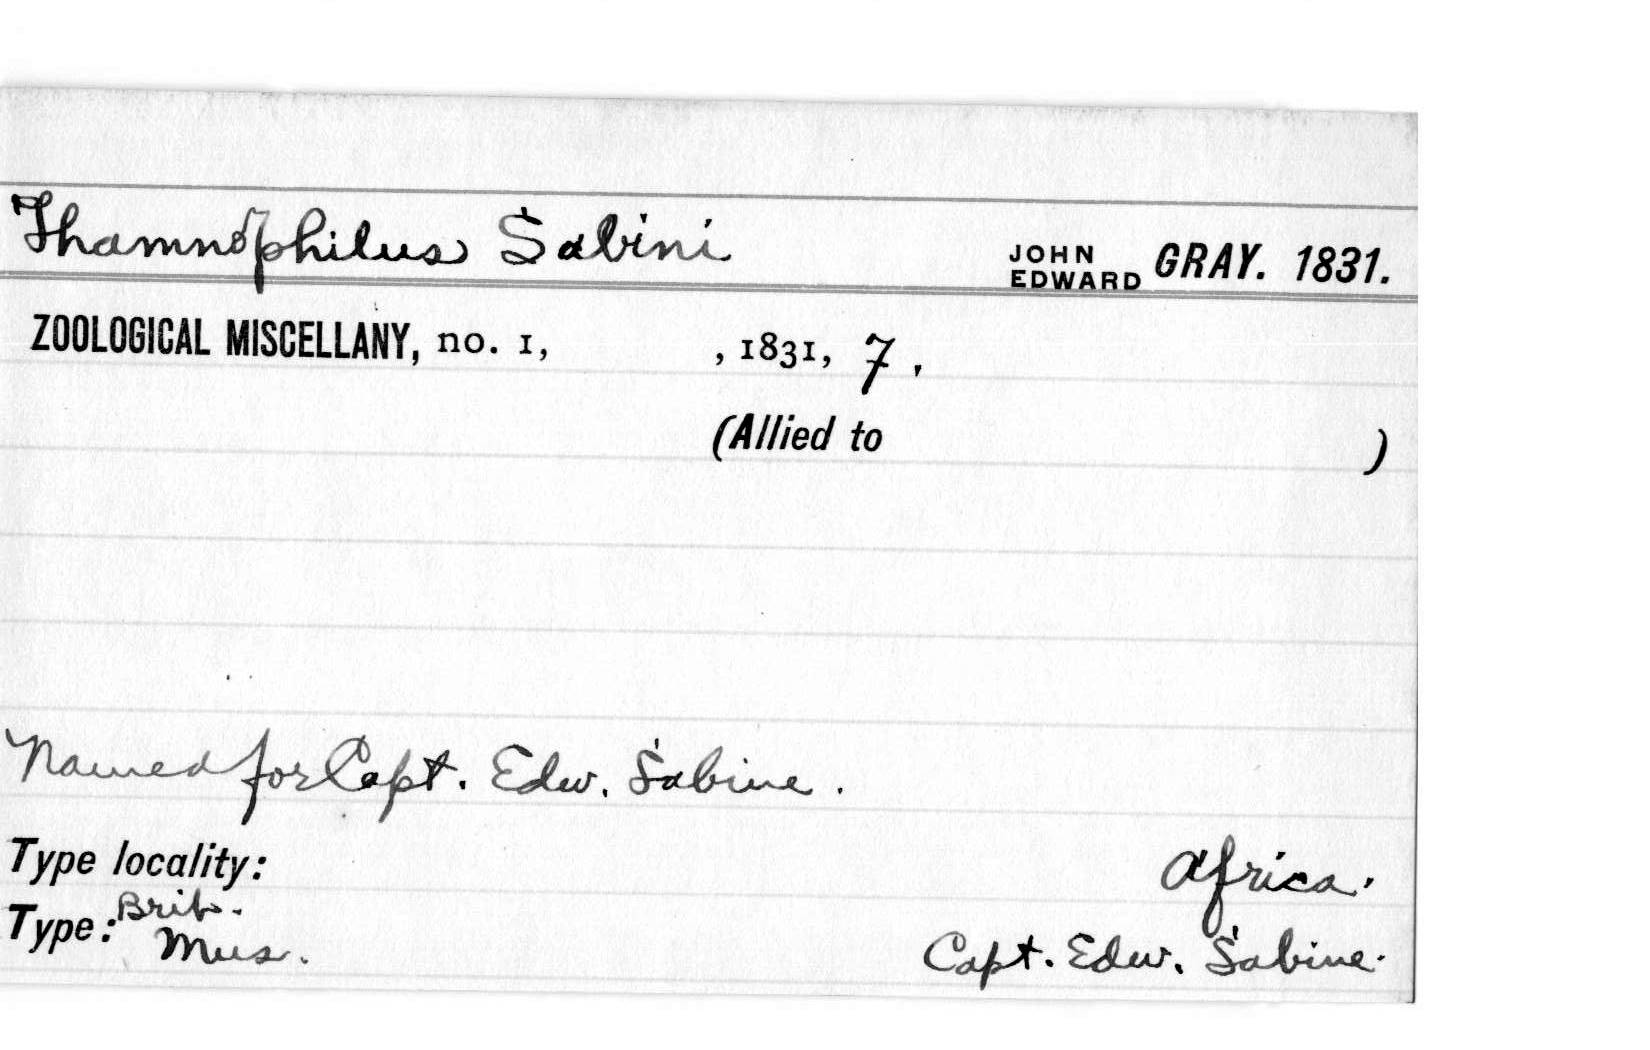 Thamnophilus Sabini JOHN EDWARD GRAY. 1831.
ZOOLOGICAL MISCELLANY, no. 1, , 1831, 7.
(Allied to )
Named for Capt. Edw. Sabine.
Type locality: Africa.
Type: Brit. Mus. Capt. Edw. Sabine.